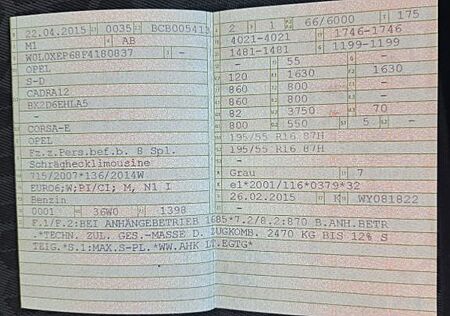 22.04.2015 0035 BCB005413
M1 AB
W0L0XEP68F4180837 -
OPEL
S-D
CADRA12
BK2D6EHLA5
-
CORSA-E
OPEL
Fz.z.Pers.bef.b. 8 Spl.
Schräghecklimousine
715/2007*136/2014W
EURO6;W;PI/CI; M, N1 I
Benzin
0001 36W0 1398
2 1 66/6000 175
4021-4021 1746-1746
1481-1481 1199-1199
- 55 -
120 1630 1630
860 800 -
860 800 -
82 3750 70
800 550 5 -
195/55 R16 87H
195/55 R16 87H
-
Grau 7
e1*2001/116*0379*32
26.02.2015 K WY081822
-
F.1/F.2:BEI ANHÄNGEBETRIEB 1685*7.2/8.2:870 B.ANH.BETR
.*TECHN. ZUL. GES.-MASSE D. ZUGKOMB. 2470 KG BIS 12% S
TEIG.*S.1:MAX.S-PL.*WW.AHK LT.EGTG*